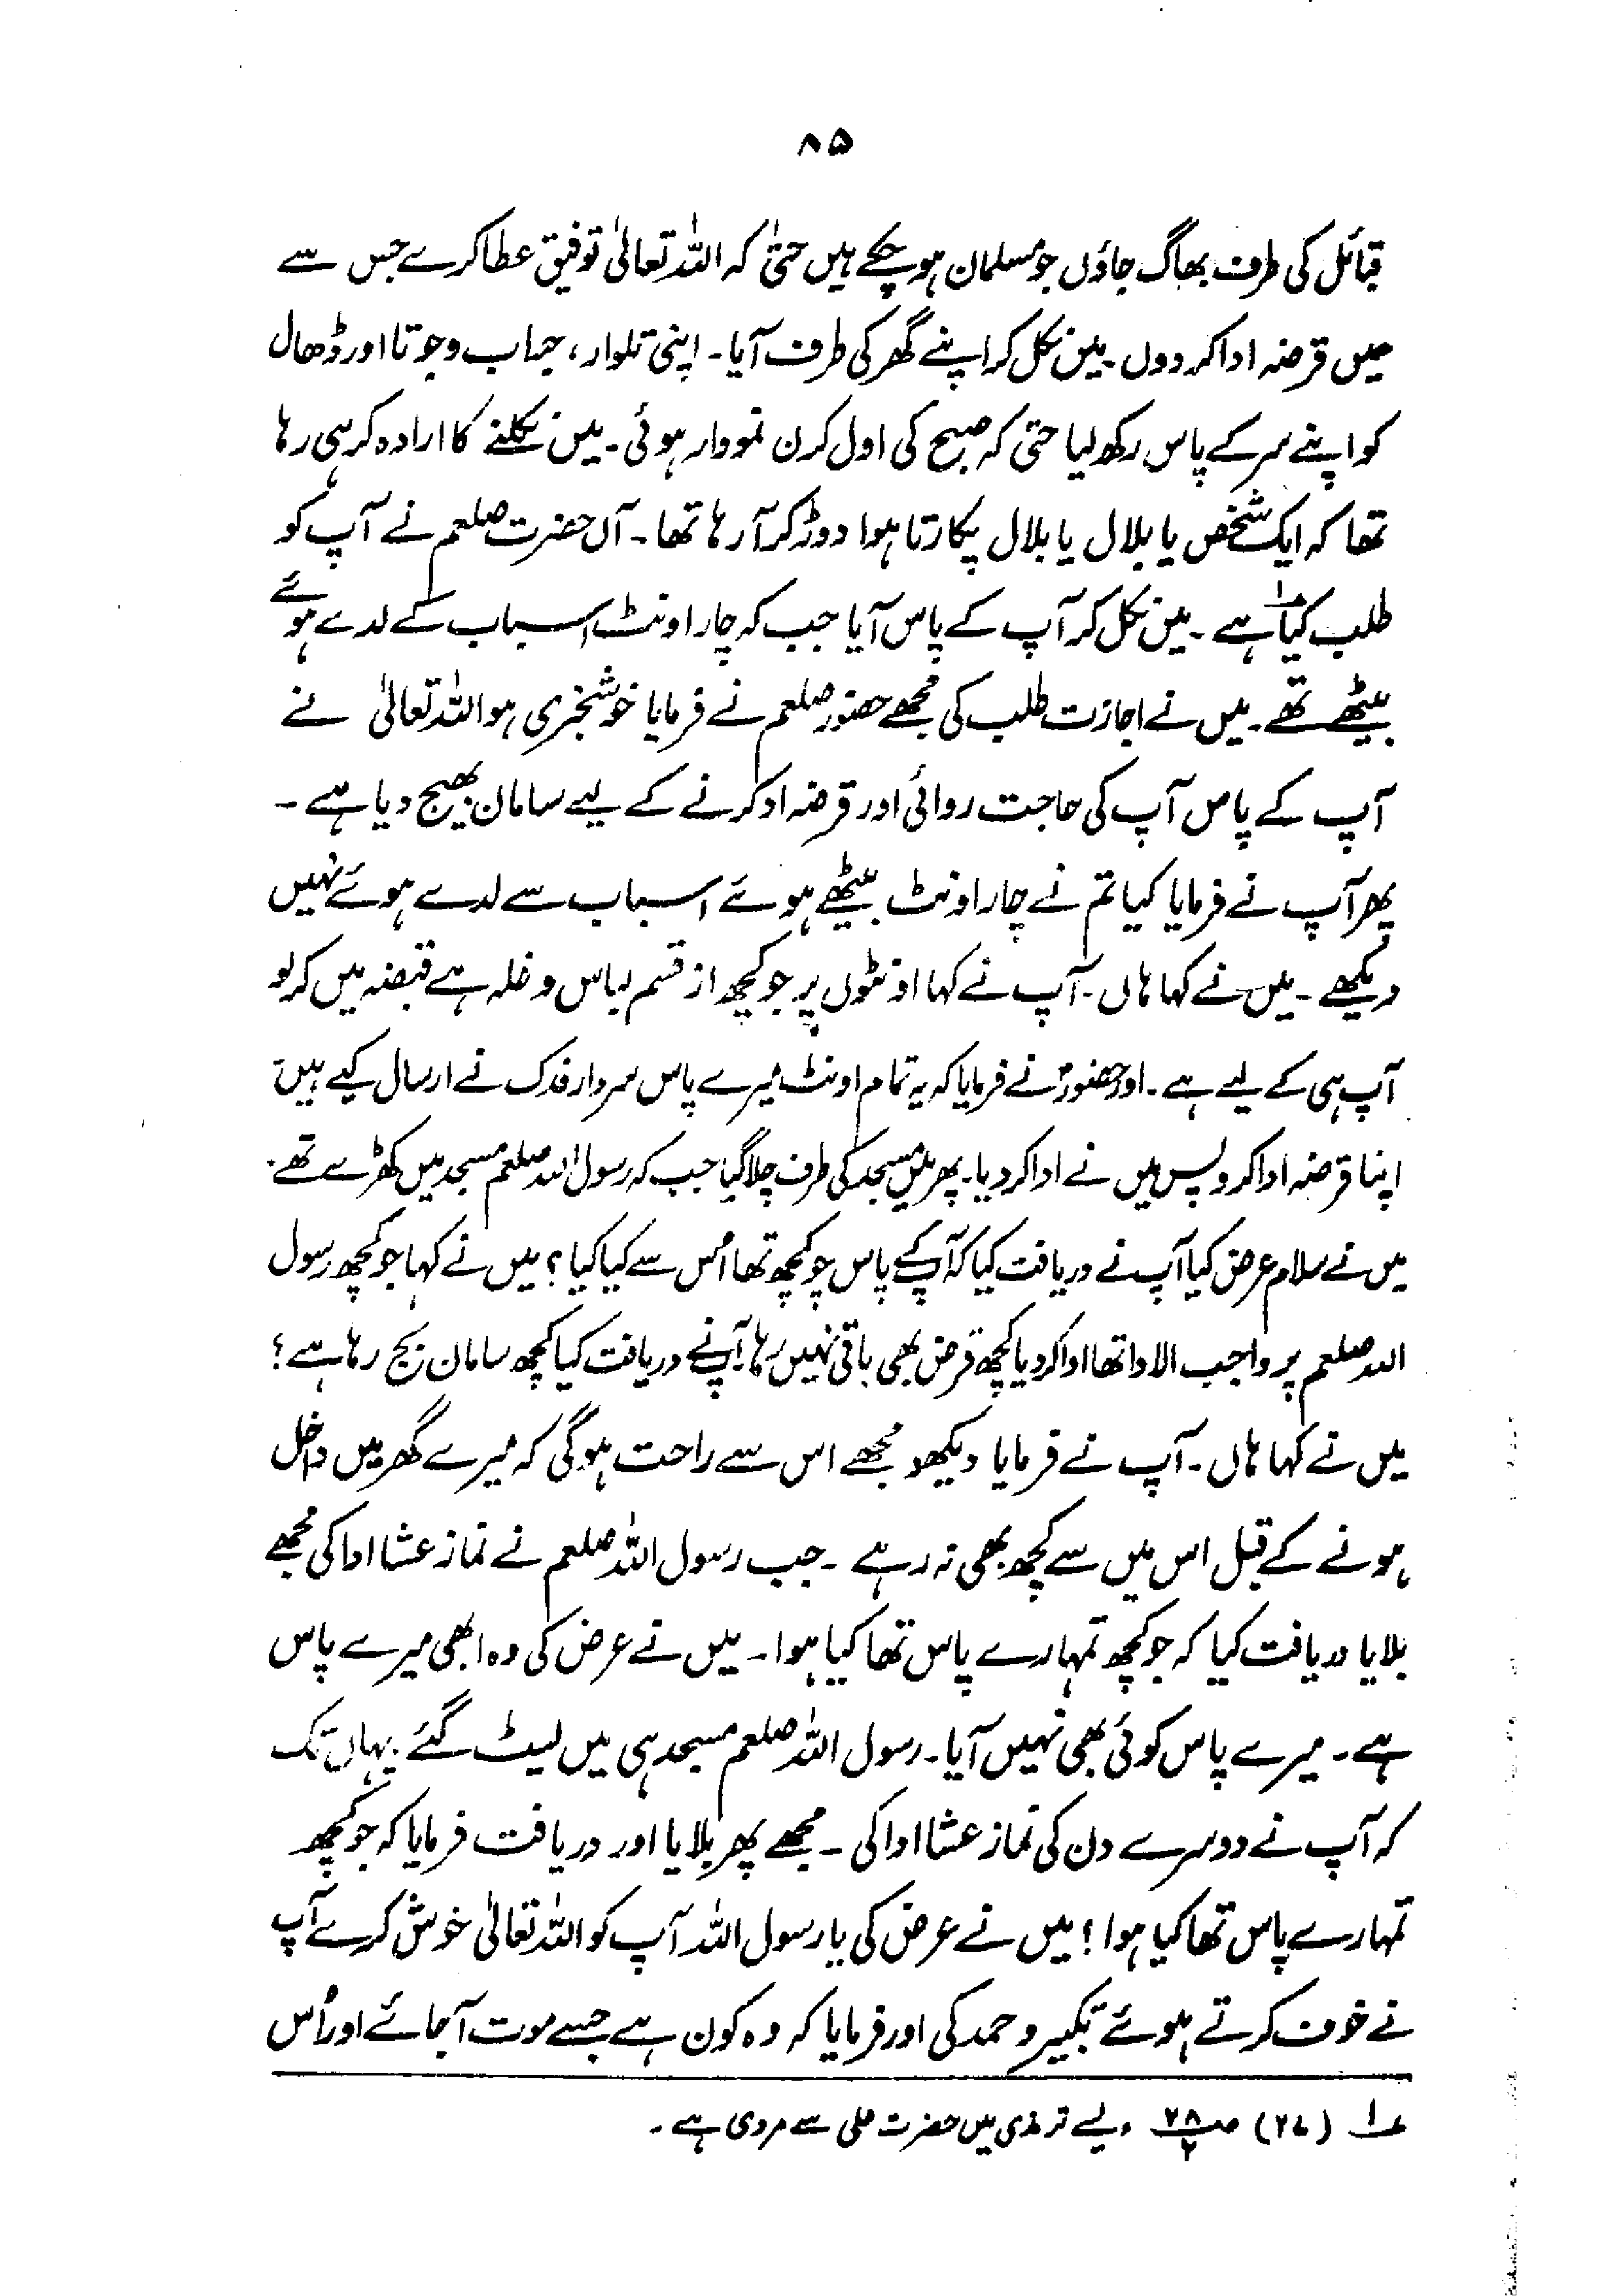 ۸۵
قبائل کی طرف بھاگ جاؤں جو مسلمان ہو چکے ہیں حتیٰ کہ اللہ تعالیٰ توفیق عطا کرے جس سے
میں قرضہ ادا کر دوں ۔ میں نکل کر اپنے گھر کی طرف آیا ۔ اپنی تلوار ، جراب و جوتا اور ڈھال
کو اپنے سر کے پاس رکھ لیا حتیٰ کہ صبح کی اول کرن نمودار ہوئی ۔ میں نکلنے کا ارادہ کر ہی رہا
تھا کہ ایک شخص یا بلال یا بلال پکارتا ہوا دوڑ کر آ رہا تھا ۔ آں حضرت صلعم نے آپ کو
طلب کیا ہے ۔ میں نکل کر آپ کے پاس آیا جب کہ چار اونٹ اسباب کے لدے ہوئے
بیٹھے تھے ۔ میں نے اجازت طلب کی مجھے حضور صلعم نے فرمایا خوشخبری ہو اللہ تعالیٰ نے
آپ کے پاس آپ کی حاجت روائی اور قرضہ ادکرنے کے لیے سامان بھیج دیا ہے ۔
پھر آپ نے فرمایا کیا تم نے چار اونٹ بیٹھے ہوئے اسباب سے لدے ہوئے نہیں
دیکھے ۔ میں نے کہا ہاں ۔ آپ نے کہا اونٹوں پر جو کچھ از قسم لباس و غلہ ہے قبضہ میں کر لو
آپ ہی کے لیے ہے ۔ اور حضورؐ نے فرمایا کہ یہ تمام اونٹ میرے پاس سردار فدک نے ارسال کیے ہیں
اپنا قرضہ ادا کرو پس میں نے ادا کر دیا ۔ پھر میں مسجد کی طرف چلا گیا جب کہ رسول اللہ صلعم مسجد میں کھڑے تھے ۔
میں نے سلام عرض کیا آپ نے دریافت کیا کہ آپ کے پاس جو کچھ تھا اُس سے کیا کیا ؟ میں نے کہا جو کچھ رسول
اللہ صلعم پر واجب الادا تھا ادا کر دیا کچھ قرض بھی باقی نہیں رہا آپ نے دریافت کیا کچھ سامان بچ رہا ہے ؟
میں نے کہا ہاں ۔ آپ نے فرمایا دیکھو مجھے اس سے راحت ہو گی کہ میرے گھر میں داخل
ہونے کے قبل اس میں سے کچھ بھی نہ رہے ۔ جب رسول اللہ صلعم نے نماز عشا ادا کی مجھے
بلایا دریافت کیا کہ جو کچھ تمہارے پاس تھا کیا ہوا ۔ میں نے عرض کی وہ ابھی میرے پاس
ہے ۔ میرے پاس کوئی بھی نہیں آیا ۔ رسول اللہ صلعم مسجد ہی میں لیٹ گئے یہاں تک
کہ آپ نے دوسرے دن کی نماز عشا ادا کی ۔ مجھے پھر بلایا اور دریافت فرمایا کہ جو کچھ
تمہارے پاس تھا کیا ہوا ؟ میں نے عرض کی یا رسول اللہ آپ کو اللہ تعالیٰ خوش کرے آپ
نے خوف کرتے ہوئے تکبیر و حمد کی اور فرمایا کہ وہ کون ہے جسے موت آ جائے اور اُس
؏۱ (۲۷) ص ۲۸/۲ ، لیے ترمذی میں حضرت علی سے مروی ہے ۔